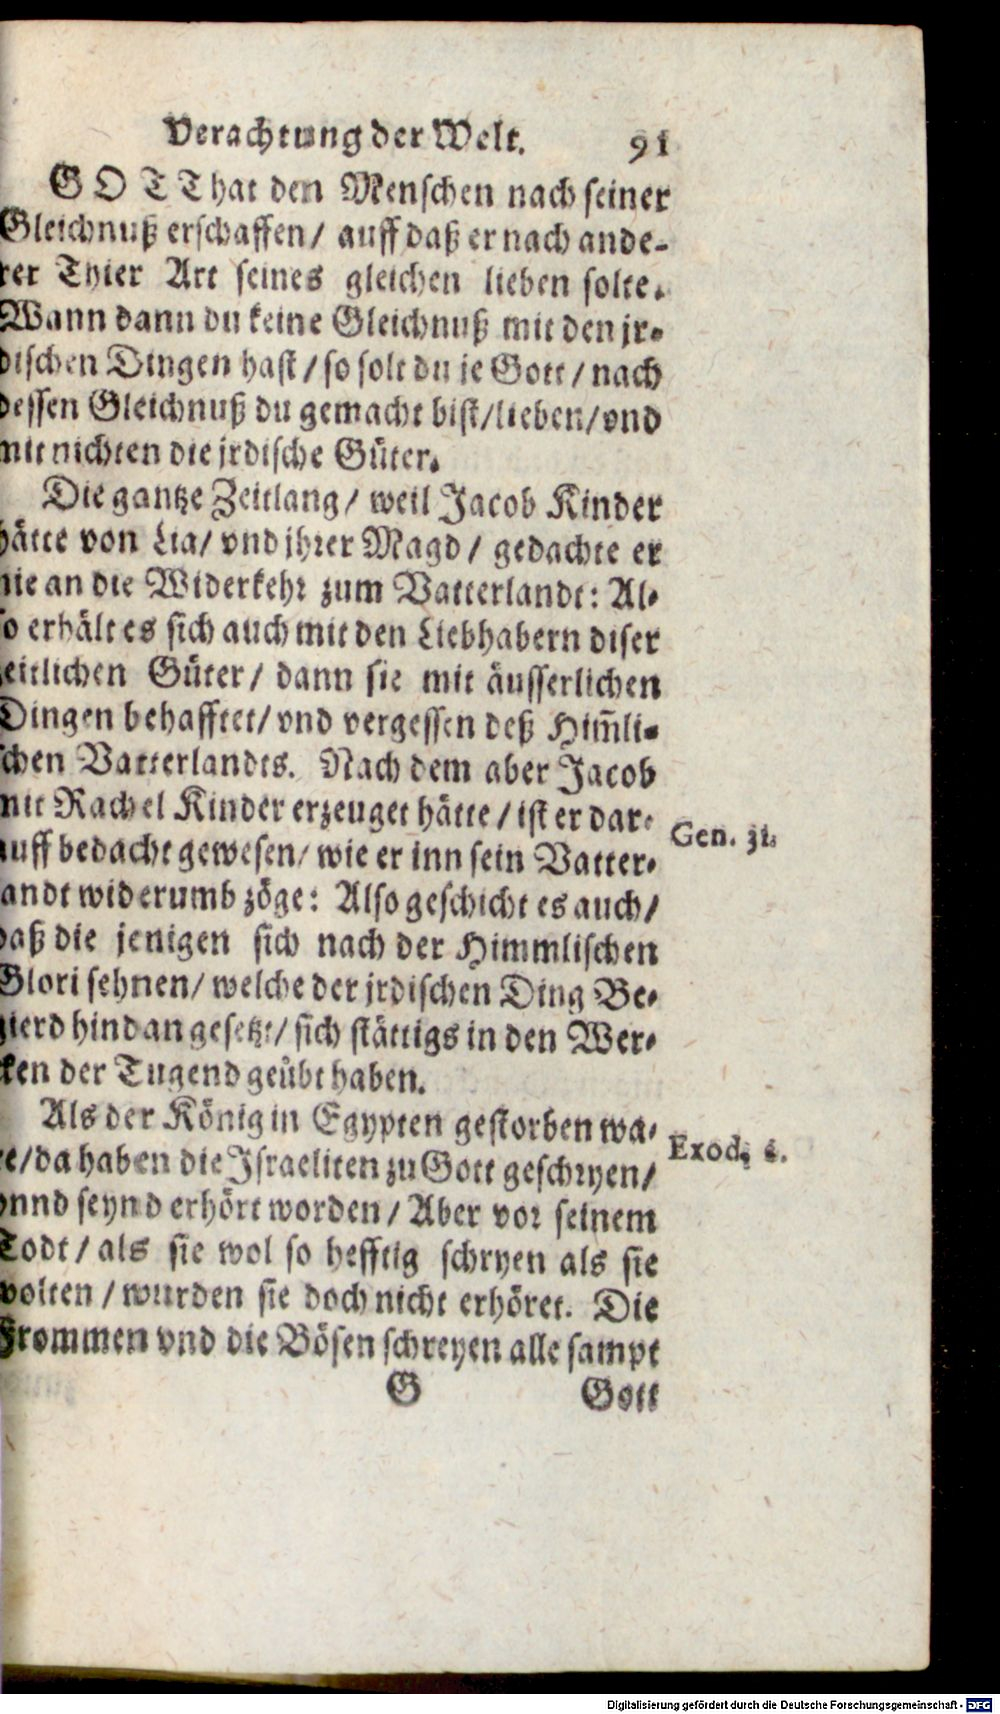 Verachtung der Welt. 91
GOTT hat den Menschen nach seiner
Gleichnuß erschaffen/ auff daß er nach ande-
rer Thier Art seines gleichen lieben solte.
Wann dann du keine Gleichnuß mit den jr-
dischen Dingen hast/ so solt du je Gott/ nach
dessen Gleichnuß du gemacht bist/ lieben/ vnd
mit nichten die jrdische Güter.
Die gantze Zeitlang/ weil Jacob Kinder
hätte von Lia/ vnd jhrer Magd/ gedachte er
nie an die Widerkehr zum Vatterlandt: Al-
so erhält es sich auch mit den Liebhabern diser
zeitlichen Güter/ dann sie mit äusserlichen
Dingen behafftet/ vnd vergessen deß Him̃li-
schen Vatterlandts. Nach dem aber Jacob
mit Rachel Kinder erzeuget hätte/ ist er dar-
auff bedacht gewesen/ wie er inn sein Vatter-
Gen. 31.
landt widerumb zöge: Also geschicht es auch/
daß die jenigen sich nach der Himmlischen
Glori sehnen/ welche der jrdischen Ding Be-
gierd hindan gesetzt/ sich stättigs in den Wer-
cken der Tugend geübt haben.
Als der König in Egypten gestorben wa-
re/ da haben die Israeliten zu Gott geschryen/
Exod.
vnnd seynd erhört worden/ Aber vor seinem
Todt/ als sie wol so hefftig schryen als sie
wolten/ wurden sie doch nicht erhöret. Die
Frommen vnd die Bösen schreyen alle sampt
G Gott
Digitalisierung gefördert durch die Deutsche Forschungsgemeinschaft - DFG